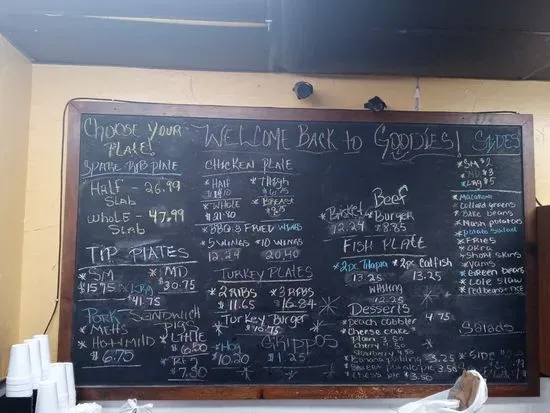 CHOOSE YOUR
PLATE!
SPARE RIB PLATE
HALF - 26.99
SLAB
WHOLE - 47.99
SLAB
TIP PLATES
*SM
$15.75
*MD
$30.75
*LRG
$41.75
PORK SANDWICH
*METTS
*HOT-MILD
$6.75
PIGS
*LITTLE
WELCOME BACK TO GOODIES!
CHICKEN PLATE
*HALF
*THIGH
*WHOLE
$21.80
*BREAST
*BBQ & FRIED WINGS
*5 WINGS
12.24
*10 WINGS
20.40
TURKEY PLATES
*2 RIBS
$11.65
*3 RIBS
$16.84
*Turkey Burger
$10.75
*HOG
10.20
Chippos
$1.25
Beef
*Brisket
12.24
*Burger
8.85
FISH PLATE
*2pc Tilapia
13.25
*2pc Catfish
13.25
Whiting
12.25
Desserts
*Peach cobbler 4.75
*Cheese cake
Plain 3.50
Cherry
Strawberry
*Banana pudding 3.25
*Sweet potato pie 3.50
*Chess pie $3.50
SIDES
*SM $2
*MD $3
*LRG $5
*Macaroni
*Collard greens
*Bake beans
*Mash potatoes
*potato Salad
*FRIES
*OKRA
*Yams
*Green beans
*Cole slaw
*Red beans + rice
Salads
*SIDE